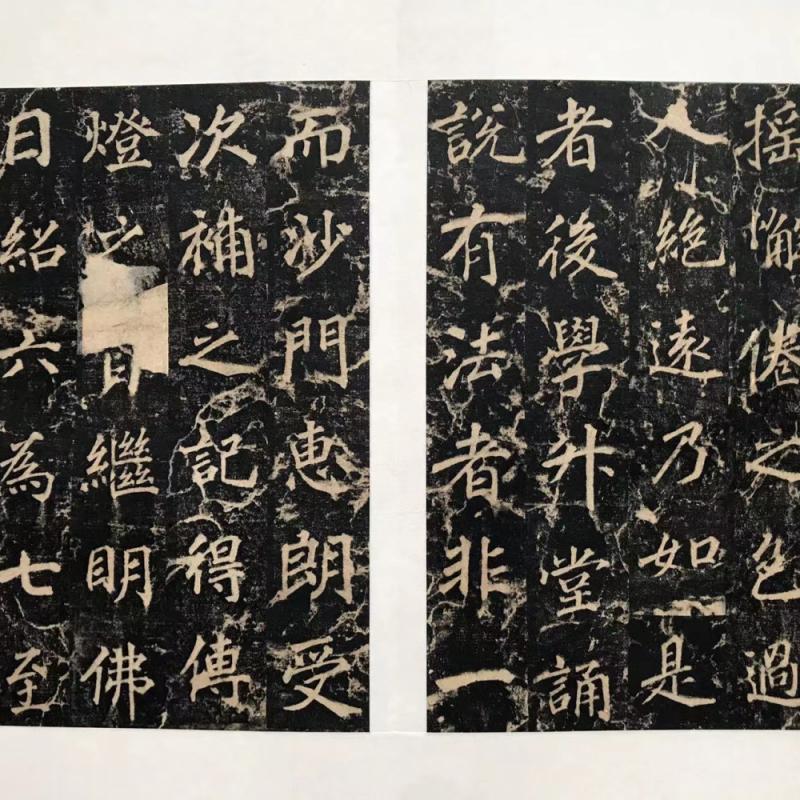 摇懈倦之色過
人絶遠乃如是
者後學升堂誦
説有法者非一
而沙門恵朗受
次補之記得傳
燈之日繼明佛
日紹六為七至